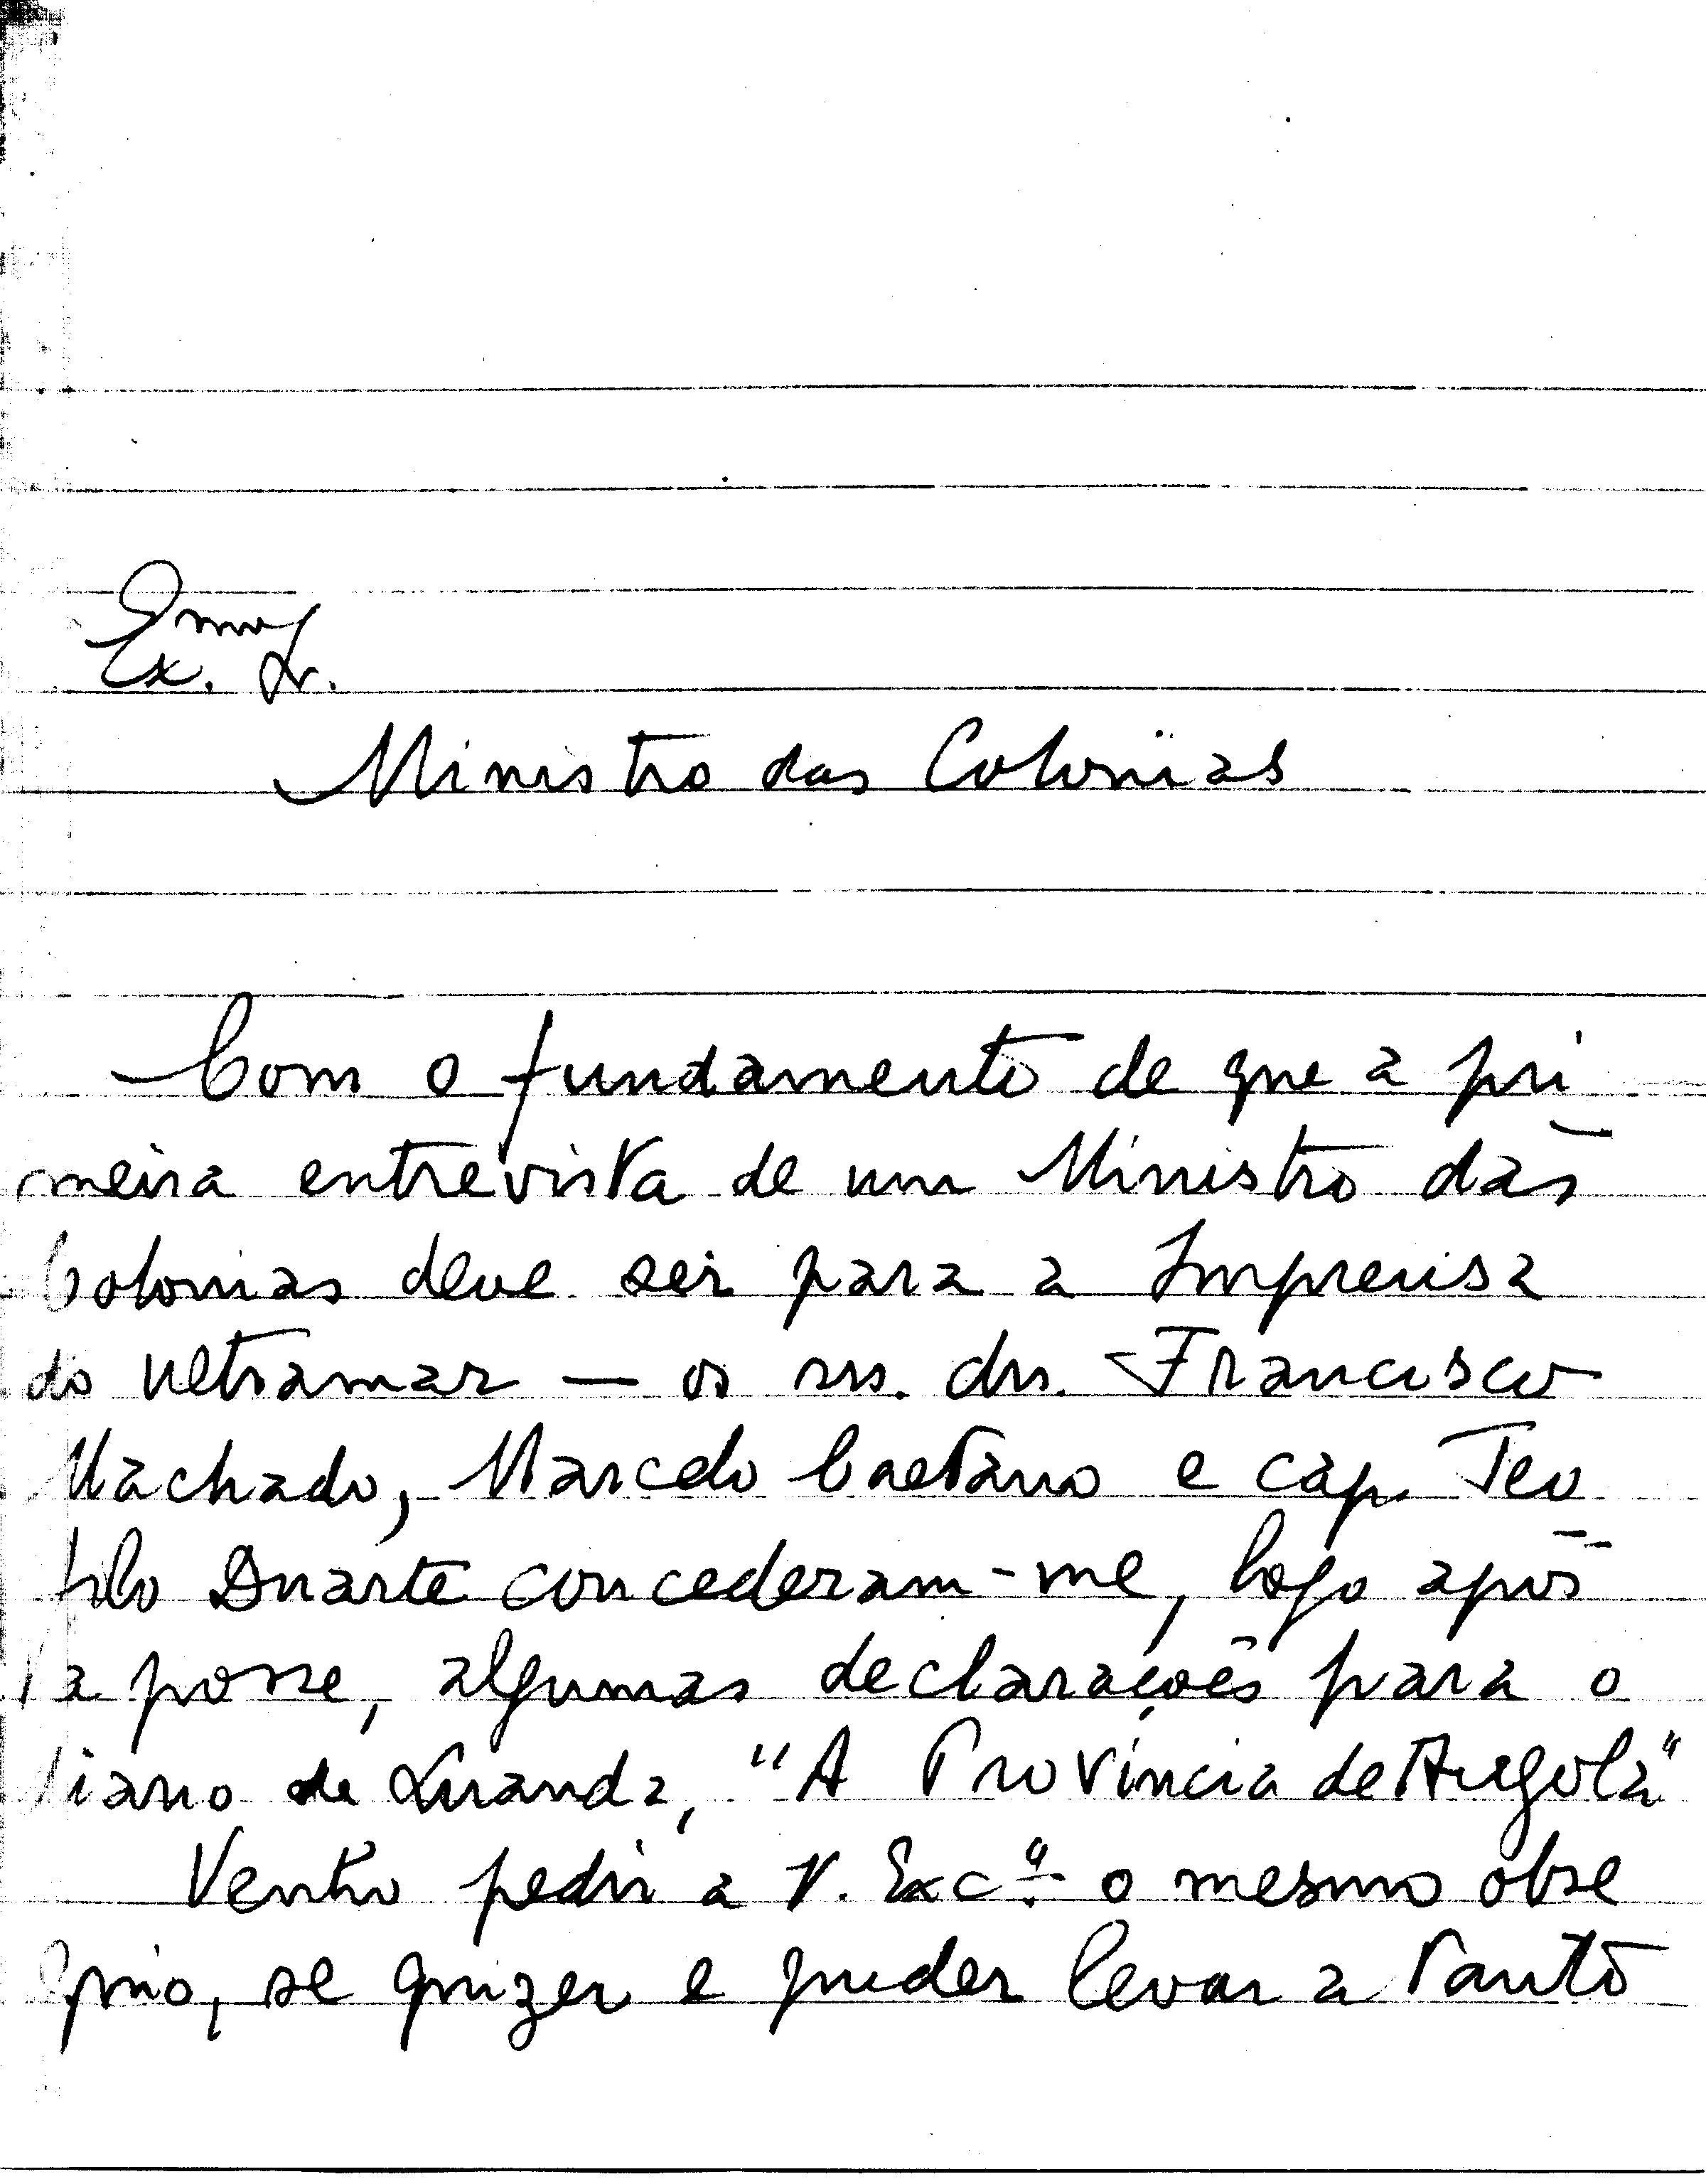 Exmo Sr.
Ministro das Colonias
Com o fundamento de que a pri
meira entrevista de um Ministro das
Colonias deve ser para a Imprensa
do Ultramar — os srs. drs. Francisco
Machado, Marcelo Caetano e cap. Teo
filo Duarte concederam-me, logo após
a posse, algumas declarações para o
diario de Luanda, "A Província de Angola"
Venho pedir a V. Exc.ª o mesmo obse
quio, se quizer e puder levar a tanto